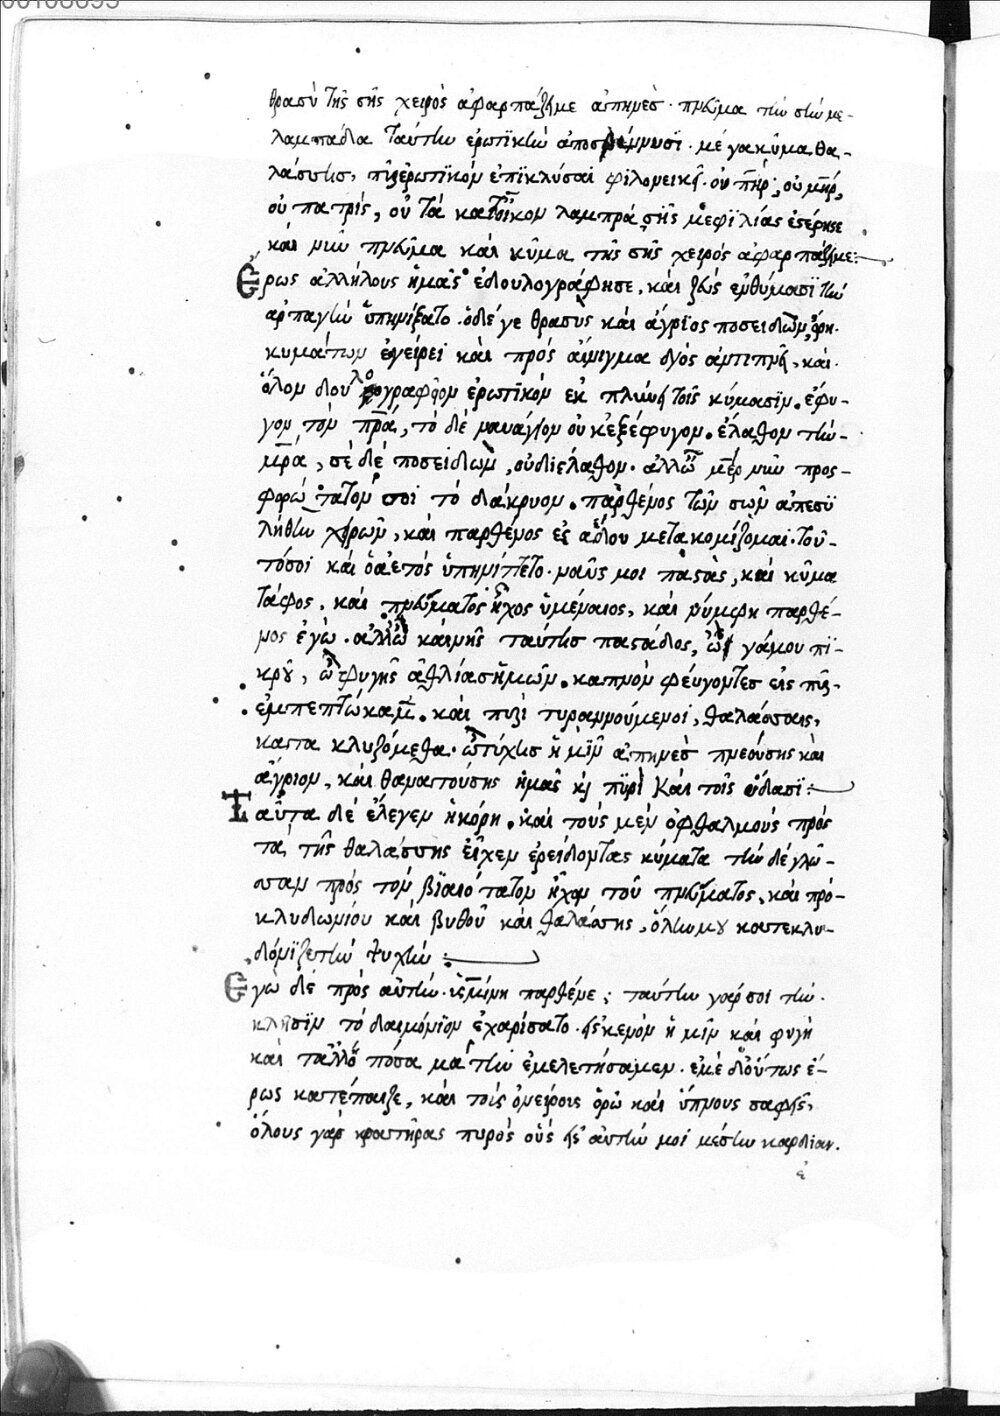 00108095
θρασὺ τῆς σῆς χειρὸς ἀφαρπάζει με ἀπηνὲς. πνεῦμα τὴν σὴν με-
λαμπάδα ταύτην ἐρωτικὴν ἀποσβέννυσϊ. μέγα κῦμα θα-
λάσσης, πῦρ ἐρωτικὸν ἐπϊκλύσαι φιλονεικεῖ. οὐ πὴρ, οὐ μὴρ,
οὐ πατρὶς, οὐ τὰ κατοῖκον λαμπρὰ σῆς με φϊλίας ἐστέρησε
καὶ νῦν πνεῦμα καὶ κῦμα τῆς σῆς χειρὸς ἀφαρπάζει με:
Ἔρως ἀλλήλους ἡμᾶς ἐδουλογράφησε, καὶ ζεὺς ἐνθύμασϊ τὴν
ἁρπαγὴν ὑπηνίξατο. ὁ δέ γε θρασὺς καὶ ἄγρϊος ποσειδῶν,
κυμάτων ἐγείρει καὶ πρὸς αἴνιγμα διὸς ἀντιπνεῖ, καὶ
ὅλον δουλογραφεῖον ἐρωτϊκὸν ἐκπλύνει τοῖς κύμασϊν. ἔφυ-
γον τὸν πρα, τὸ δὲ ναυάγιον οὐκ ἐξέφυγον. ἔλαθον τὴν
μρα, σὲ δὲ ποσειδῶν, οὐ διέλαθον. ἀλλ' ὦ μερ νῦν προσ-
φρω τατον σοι τὸ δάκρυον. παρθένος τῶν σῶν ἀπεσϋ
λήθην χειρῶν, καὶ παρθένος ἐς ἅδου μετακομίζομαι. τοῦ-
τό σοι καὶ ὁ ἀετὸς ὑπηνίττετο. ναῦς μοι παστὰς, καὶ κῦμα
τάφος, καὶ πνεύματος ἦχος ὑμέναιος, καὶ νύμφη παρθέ-
νος ἐγὼ. ἀλλ' ὢ καινῆς ταύτης παστάδος, ὢ γάμου πϊ-
κροῦ, ὢ φυγῆς ἀθλίας ἡμῶν. καπνὸν φεύγοντες εἰς πῦρ
ἐμπεπτώκαμεν. καὶ πυρὶ τυραννούμενοι, θαλάσσαις,
κατακλυζόμεθα. ὢ τύχης ἡμῖν ἀπηνὲς πνεούσης καὶ
ἄγριον, καὶ θανατούσης ἡμᾶς κ πϋρὶ καὶ τοῖς ὕδασϊ:
Ταῦτα δὲ ἔλεγεν ἡ κόρη. καὶ τοὺς μὲν ὀφθαλμοὺς πρὸς
τὰ τῆς θαλάσσης εἶχεν ἐρείδοντας κύματα τὴν δὲ γλῶ-
σσαν πρὸς τὸν βϊαιότατον ἦχον τοῦ πνεύματος, καὶ πρὸ-
κλυδωνίου καὶ βυθοῦ καὶ θαλάσσης, ὅλην μου κατεκλυ-
δώνϊζε τὴν ψυχὴν:
Ἐγὼ δὲ πρὸς αὐτὴν. ὑσμίνη παρθένε; ταύτην γάρ σοι τὴν
κλῆσϊν τὸ δαιμόνϊον ἐχαρίσατο. εἰς κενὸν ἡμῖν καὶ φυγὴ
καὶ τἄλλ' ὅσα μάτην ἐμελετήσαμεν. ἐμὲ δ' οὕτως ἔ-
ρως κατέπαιξε, καὶ τοῖς ὀνείροις ὁρῶ καὶ ὕπνους σαφεῖς,
ὅλους γὰρ κρατῆρας πυρὸς οὓς εἰς αὐτήν μοι μέσην καρδίαν.